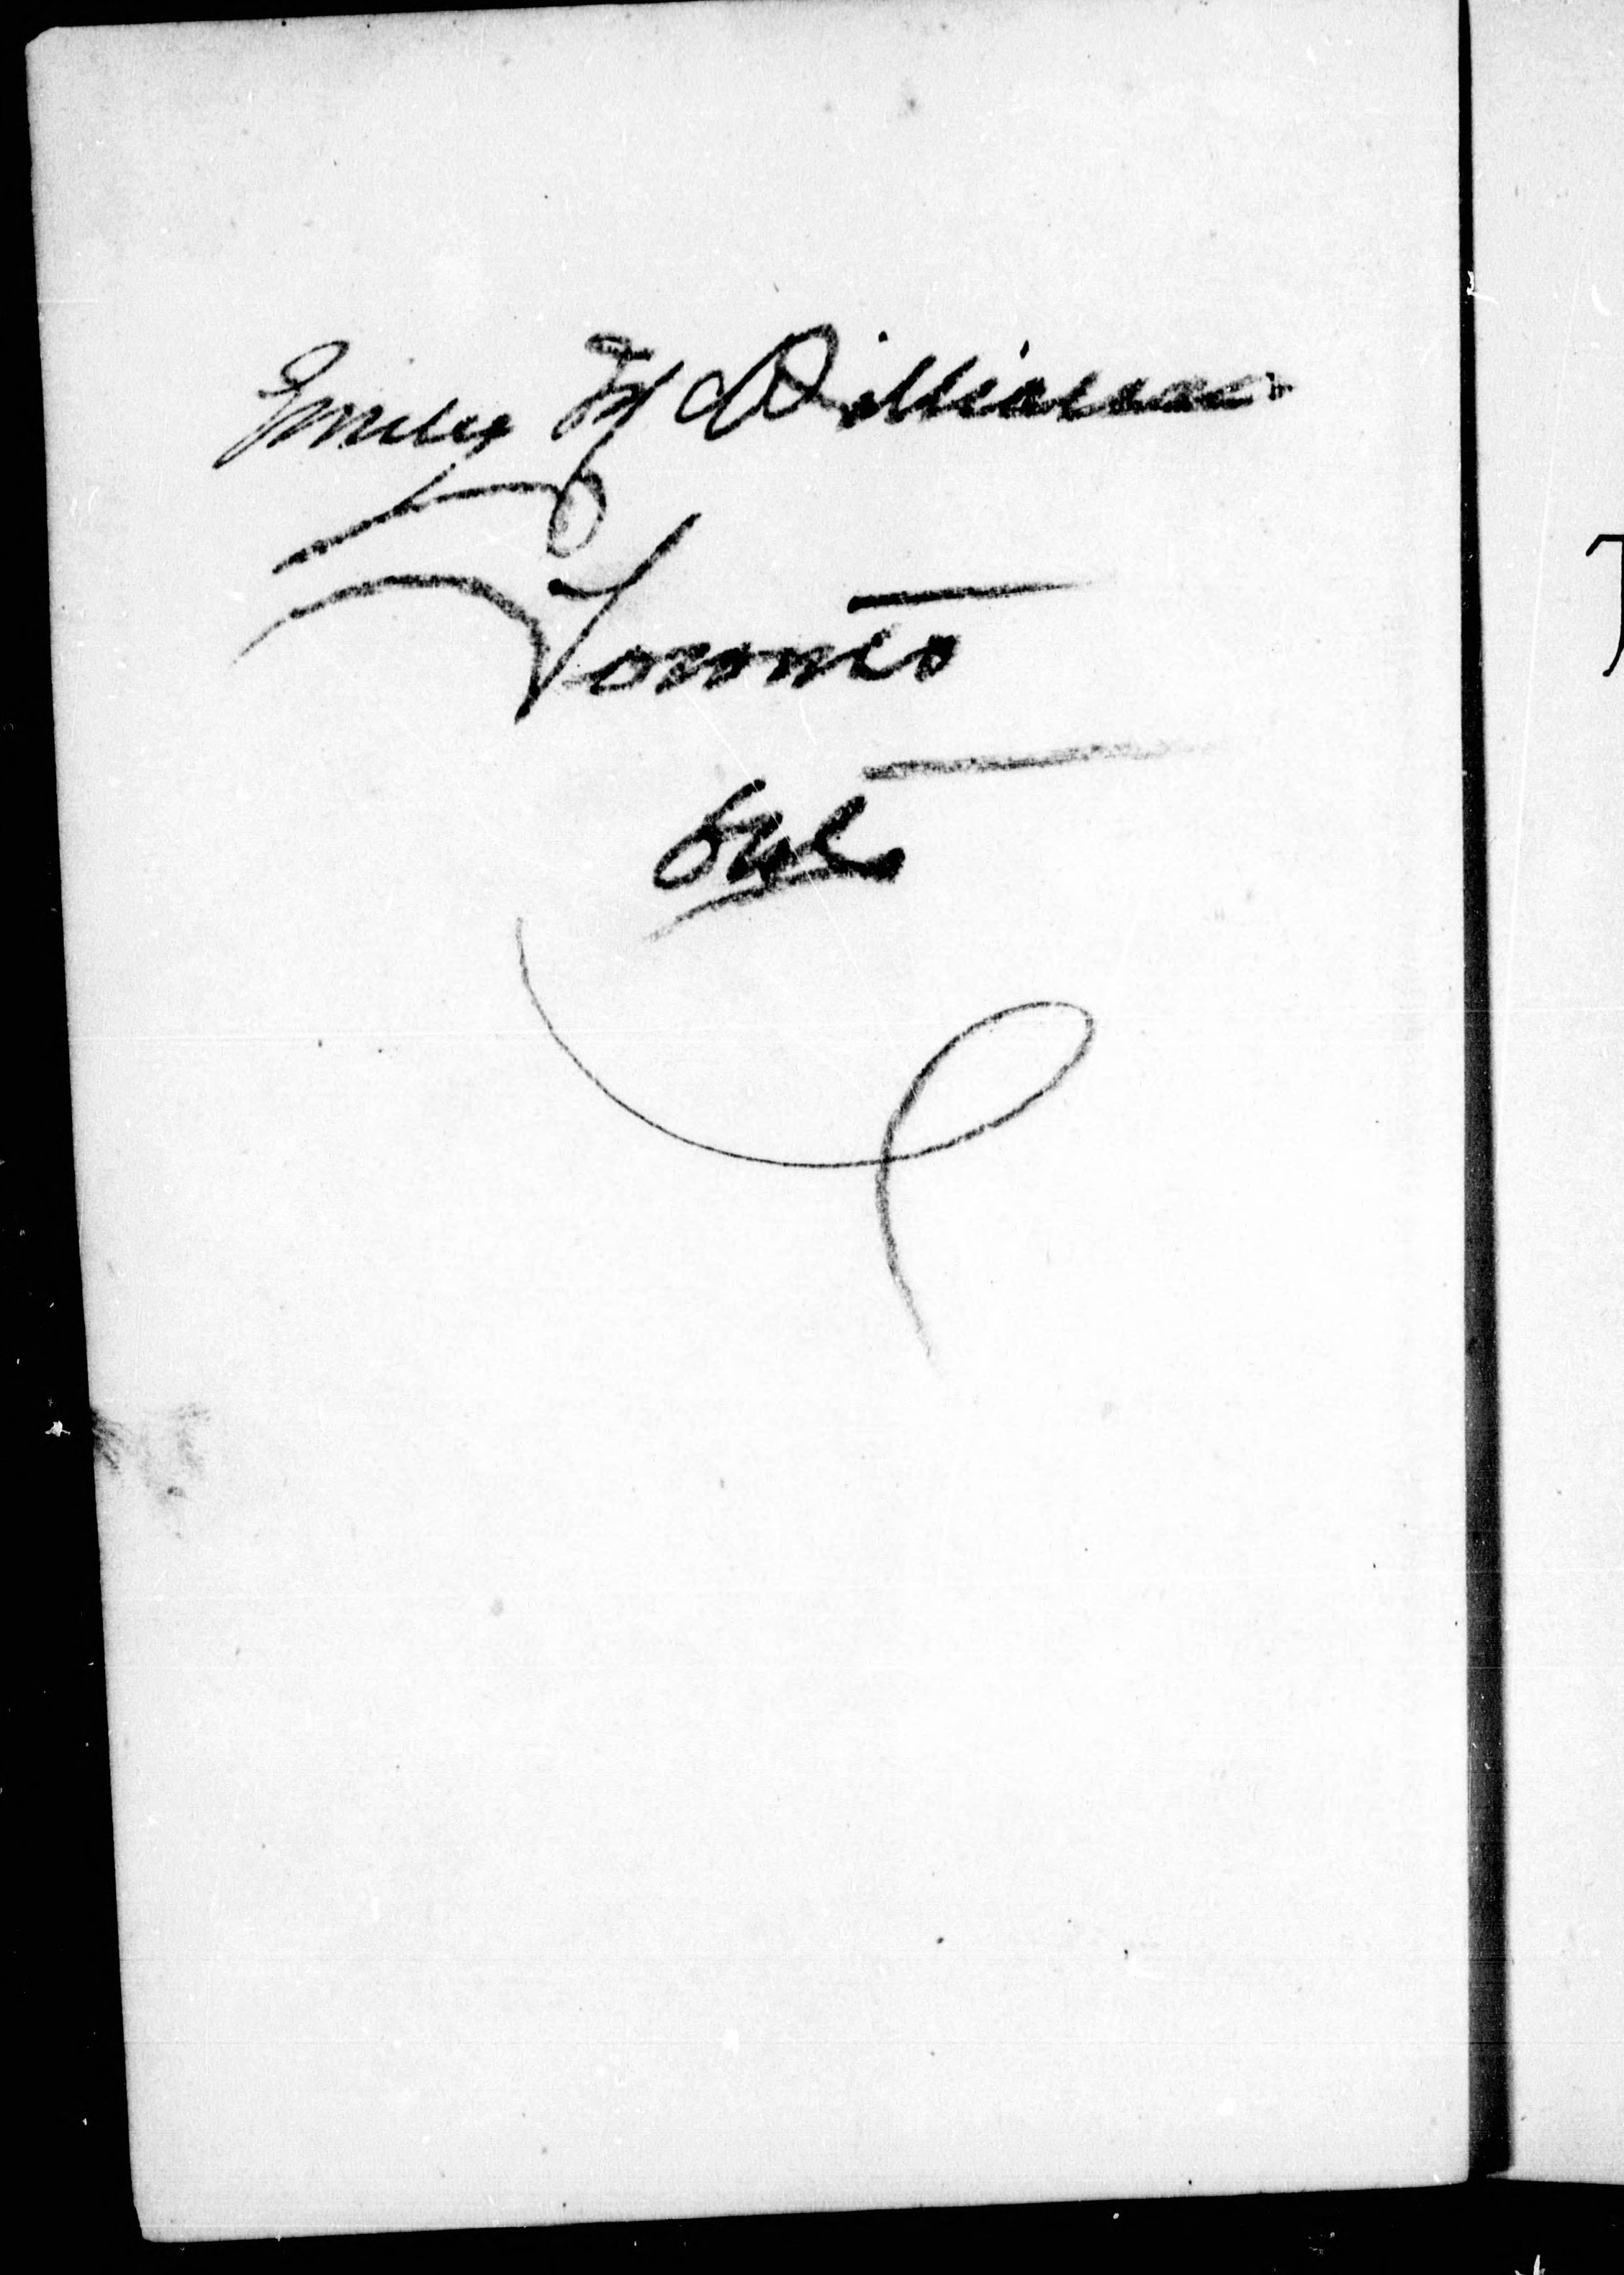 Emily H Williams
Toronto
Ont.